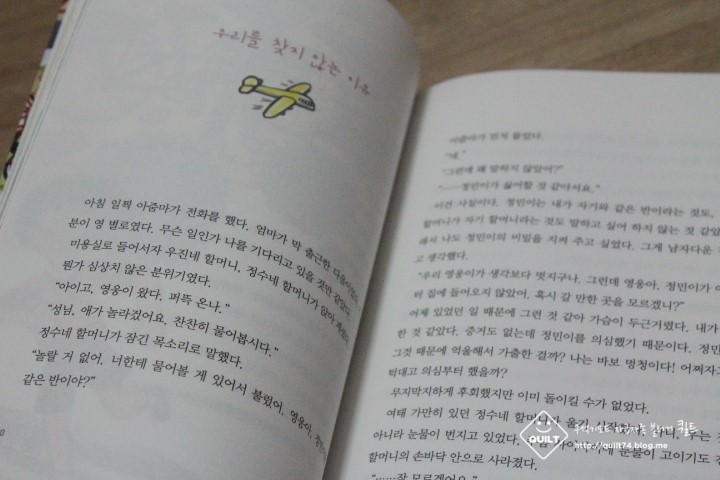 우리를 찾지 않는 이유
아침 일찍 아줌마가 전화를 했다. 엄마가 막 출근한 다음이었다.
분이 영 별로였다. 무슨 일인가 나를 기다리고 있을 것만 같았다.
미용실로 들어서자 우진네 할머니, 정수네 할머니가 앉아 계셨다.
뭔가 심상치 않은 분위기였다.
“아이고, 영웅이 왔다. 퍼뜩 온나.”
“성님, 애가 놀라겠어요. 찬찬히 물어봅시다.”
정수네 할머니가 잠긴 목소리로 말했다.
“놀랄 거 없어. 너한테 물어볼 게 있어서 불렀어. 영웅아,
같은 반이야?”
아줌마가 먼저 물었다.
“네.”
“그런데 왜 말하지 않았어?”
“……정민이가 싫어할 것 같아서요.”
이건 사실이다. 정민이는 내가 자기와 같은 반이라는 것도,
할머니가 자기 할머니라는 것도 말하고 싶어 하지 않는 것 같았
해서 나도 정민이의 비밀을 지켜 주고 싶었다. 그게 남자다운
고 생각했다.
“우리 영웅이가 생각보다 멋지구나. 그런데 영웅아, 정민이가
터 집에 들어오지 않았어. 혹시 갈 만한 곳을 모르겠니?”
어제 있었던 일 때문에 그런 것 같아 가슴이 두근거렸다. 내가
한 것 같았다. 증거도 없는데 정민이를 의심했기 때문이다. 정민
그것 때문에 억울해서 가출한 걸까? 나는 바보 멍청이다! 어쩌자고
턱대고 의심부터 했을까?
무지막지하게 후회했지만 이미 돌이킬 수가 없었다.
여태 가만히 있던 정수네 할머니가
아니라 눈물이 번지고 있었다. 눈물이 고이기도
할머니의 손바닥 안으로 사라졌다.
“……잘 모르겠어요.”
QUILT
퀼트
http://quilt74.blog.me